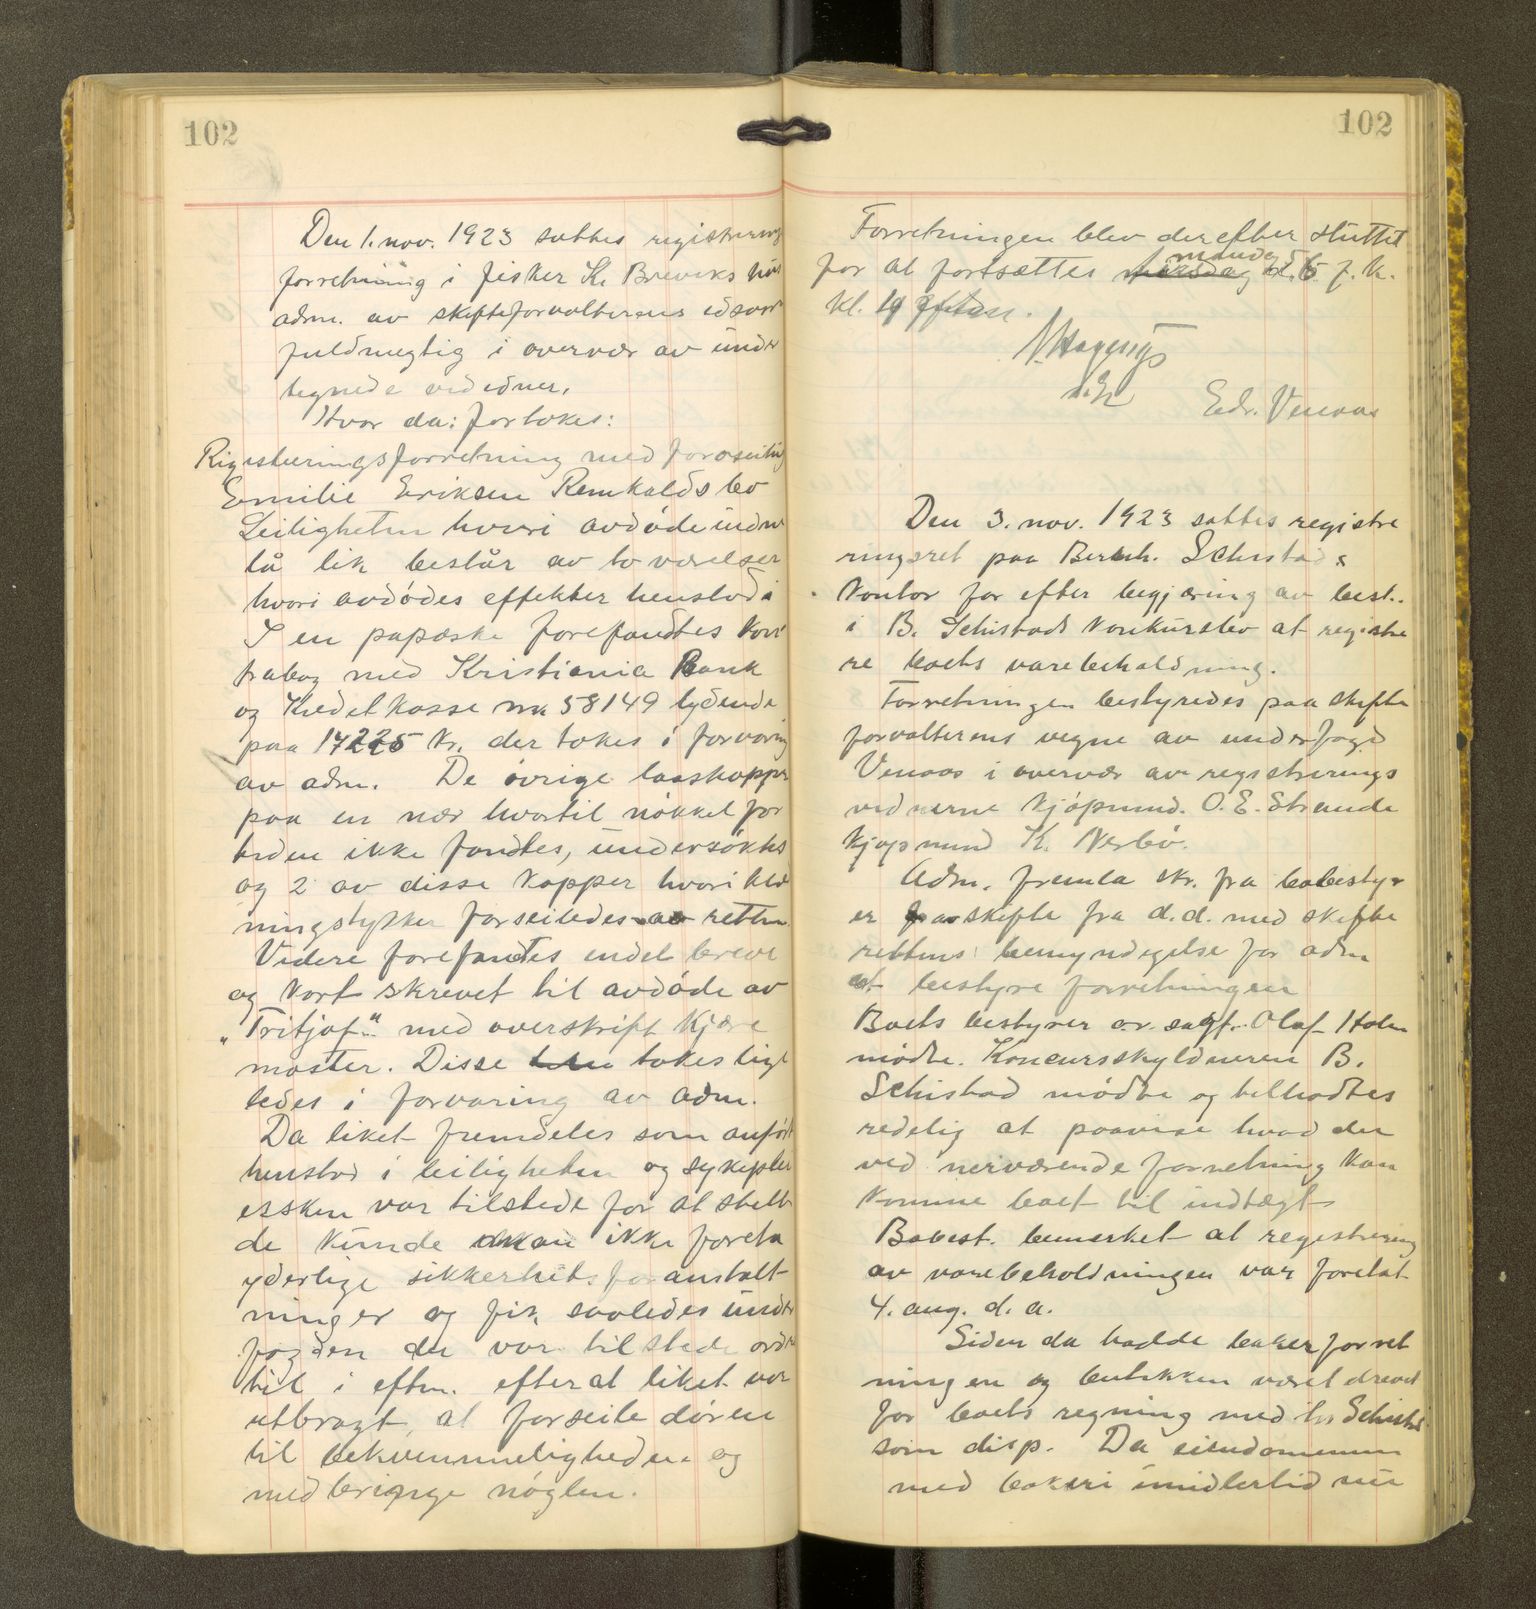 102
Den 1. nov. 1923 sattes registrerings
forretning i fisker K. Breviks hus
adm. av skifteforvalterens edsvor
fuldmegtig i overvær av under
tegnede vidner.
Hvor da: fortokes:
Registreringsforretning med forseiling
Emilie Eriksen Remkalds bo
Leiligheten hvori avdøde indne
lå lik består av to værelser
hvori avdødes effekter henstod i
I en papæske forefandtes kon
trabog med Kristiania Bank
og Kredetkasse nr 58149 lydende
paa 17225 kr. der tokes i forvaring
av adm. De øvrige laaskopper
paa en nær hvortil nøkkel for
tiden ikke fandtes, undersøktes
og 2 av disse kopper hvori klæ
ningstykker forseiledes av retten.
Videre forefandtes endel breve
og kort skrevet til avdøde av
„Fritjof" med overskrift kjære
moster. Disse tokes lige
ledes i forvaring av adm.
Da liket fremdeles som anført
henstod i leiligheten og sykeplei
ersken var tilstede for at stelle
de kunde man ikke foreta
yderlige sikkerhetsforanstalt
ninger og fik saaledes under
fogden der var tilstede ordre
til i eftm. efterat liket var
utbragt, at forseile døren
til bekvemmeligheden og
medbringe nøglen.
102
Forretningen blev derefter sluttet
for at fortsættes mandag d. 5 f. k.
kl.
Edv. Venaas
Den 3. nov. 1923 sattes registre
ringsret paa Bernh. Schistads
kontor for efter begjæring av best.
i B. Schistads konkursbo at registre
re boets varebeholdning.
Forretningen bestyredes paa skifte
forvalterens vegne av underfogd
Venaas i overvær av registrerings
vidnerne kjøpmnd. O. E. Strande
kjøpmnd K. Nesbø.
Adm. fremla skr. fra bobestyr
er skifte fra d.d. med skifte
rettens bemyndigelse for adm
at bestyre forretningen
Boets bestyrer o.r. sagf. Olaf Holm
mødte. Koncursskyldneren B.
Schistad mødte og tilholdtes
redelig at paavise hvad der
ved nerværende forretning kan
komme boet til indtægt
Bobest. bemerket at registrering
av varebeholdningen var foretat
4. aug. d. a.
Siden da hadde bakerforret
ningen og butikken været drevet
for boets regning med hr Schistad
som disp. Da eiendommen
med bakeri imidlertid nu